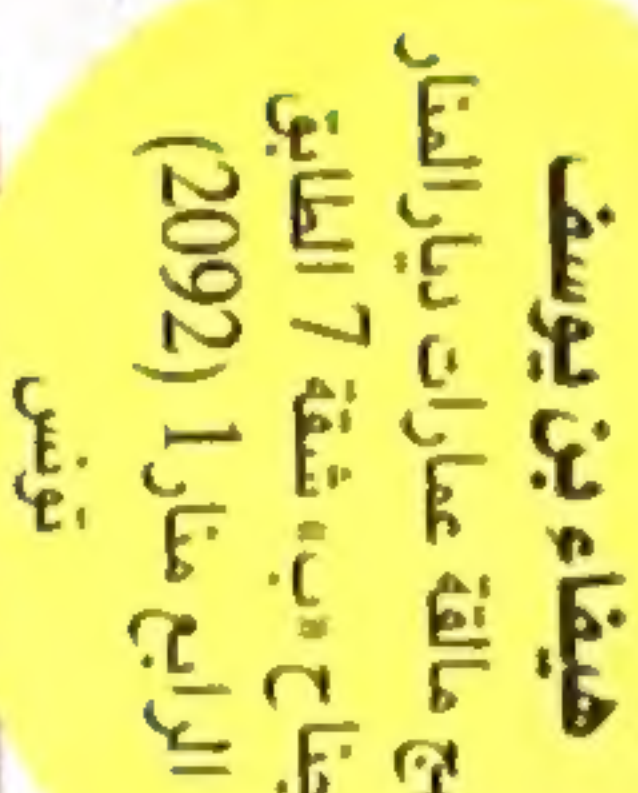 هيفاء بن يوسف
مالقة عمارات ديار المنار
«ب» شقة 7 الطابق
الرابع منار 1 (2092)
تونس